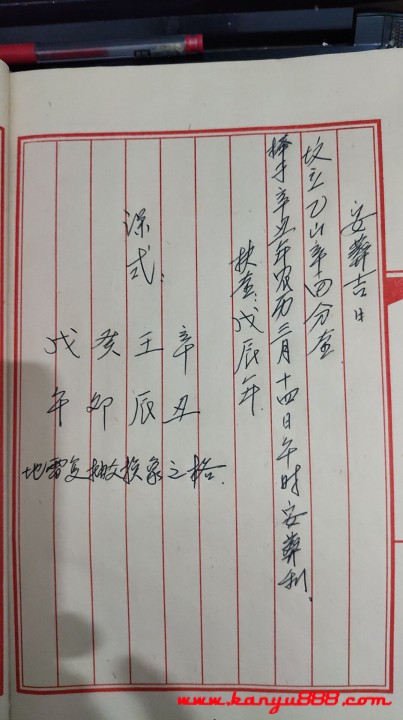 安葬吉日
坟立乙山辛向分金
择于辛丑年农历三月十四日午时安葬利.
扶金:戊辰年.
课式:
辛丑
壬辰
癸卯
戊午
地雷复抽爻换象之格.
www.kanyu888.com